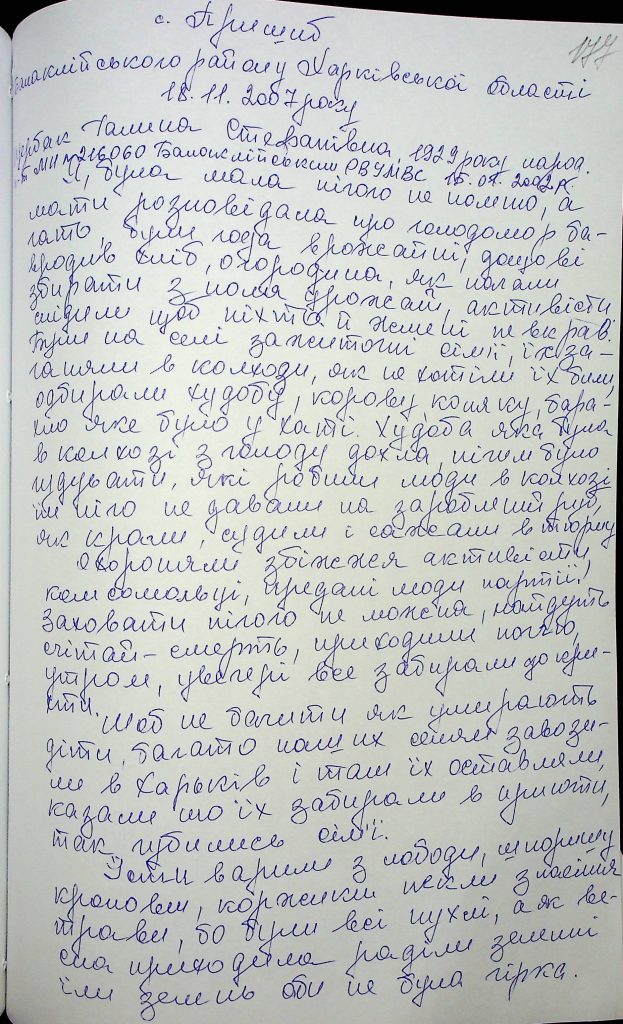 с. Пришиб
177
Балаклійського району Харківської області
18.11.2007 року
Щербак Галина Степанівна, 1929 року народ.
п-т МН № 216060 Балаклійським РВУМВС 15.01.2002 р.
Я, була мала нічого не помню, а
мати розповідала про голодомор ба-
гать, були года врожайні, дощові
вродив хліб, огородина, як почали
збирати з поля урожай, активісти
слідили щоб ніхто й жмені не вкрав.
Були на селі зажиточні сім'ї, їх за-
ганяли в колхози, як не хотіли їх били,
одбирали худобу, корову, коняку, бара-
хло яке було у хаті. Худоба яка була
в колхозі з голоду дохла, нічим було
годувати, які робили люди в колхозі
їм нічо не давали на зароблений руб,
як крали, судили і сажали в тюрму
Охороняли збіжжя активісти,
комсомольці, предані люди партії,
Заховати нічого не можна, найдуть
считай – смерть, приходили ноччю,
утром, увечері все забирали до кри-
хти.
Щоб не бачити як умирають
діти, багато наших селян завози-
ли в Харьків і там їх оставляли,
казали шо їх забирали в приюти,
так губились сім'ї.
Їсти варили з лободи, шпоришу
кропови, коржики пекли з насіння
трави, бо були всі пухлі, а як ве-
сна приходила раділи зеленні
їли зелень аби не була гірка.